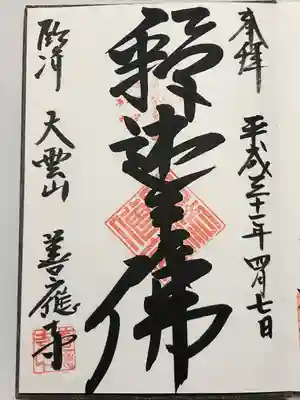 奉拝
平成三十一年四月七日
釋迦佛
臨済 大雲山 善應寺